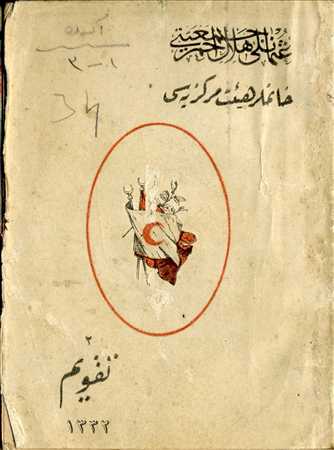 عثمانلی هلال احمر جمعیتی
خانملر هیئت مرکزیه‌سی
٣-١
٢
تقویم
١٣٣٢